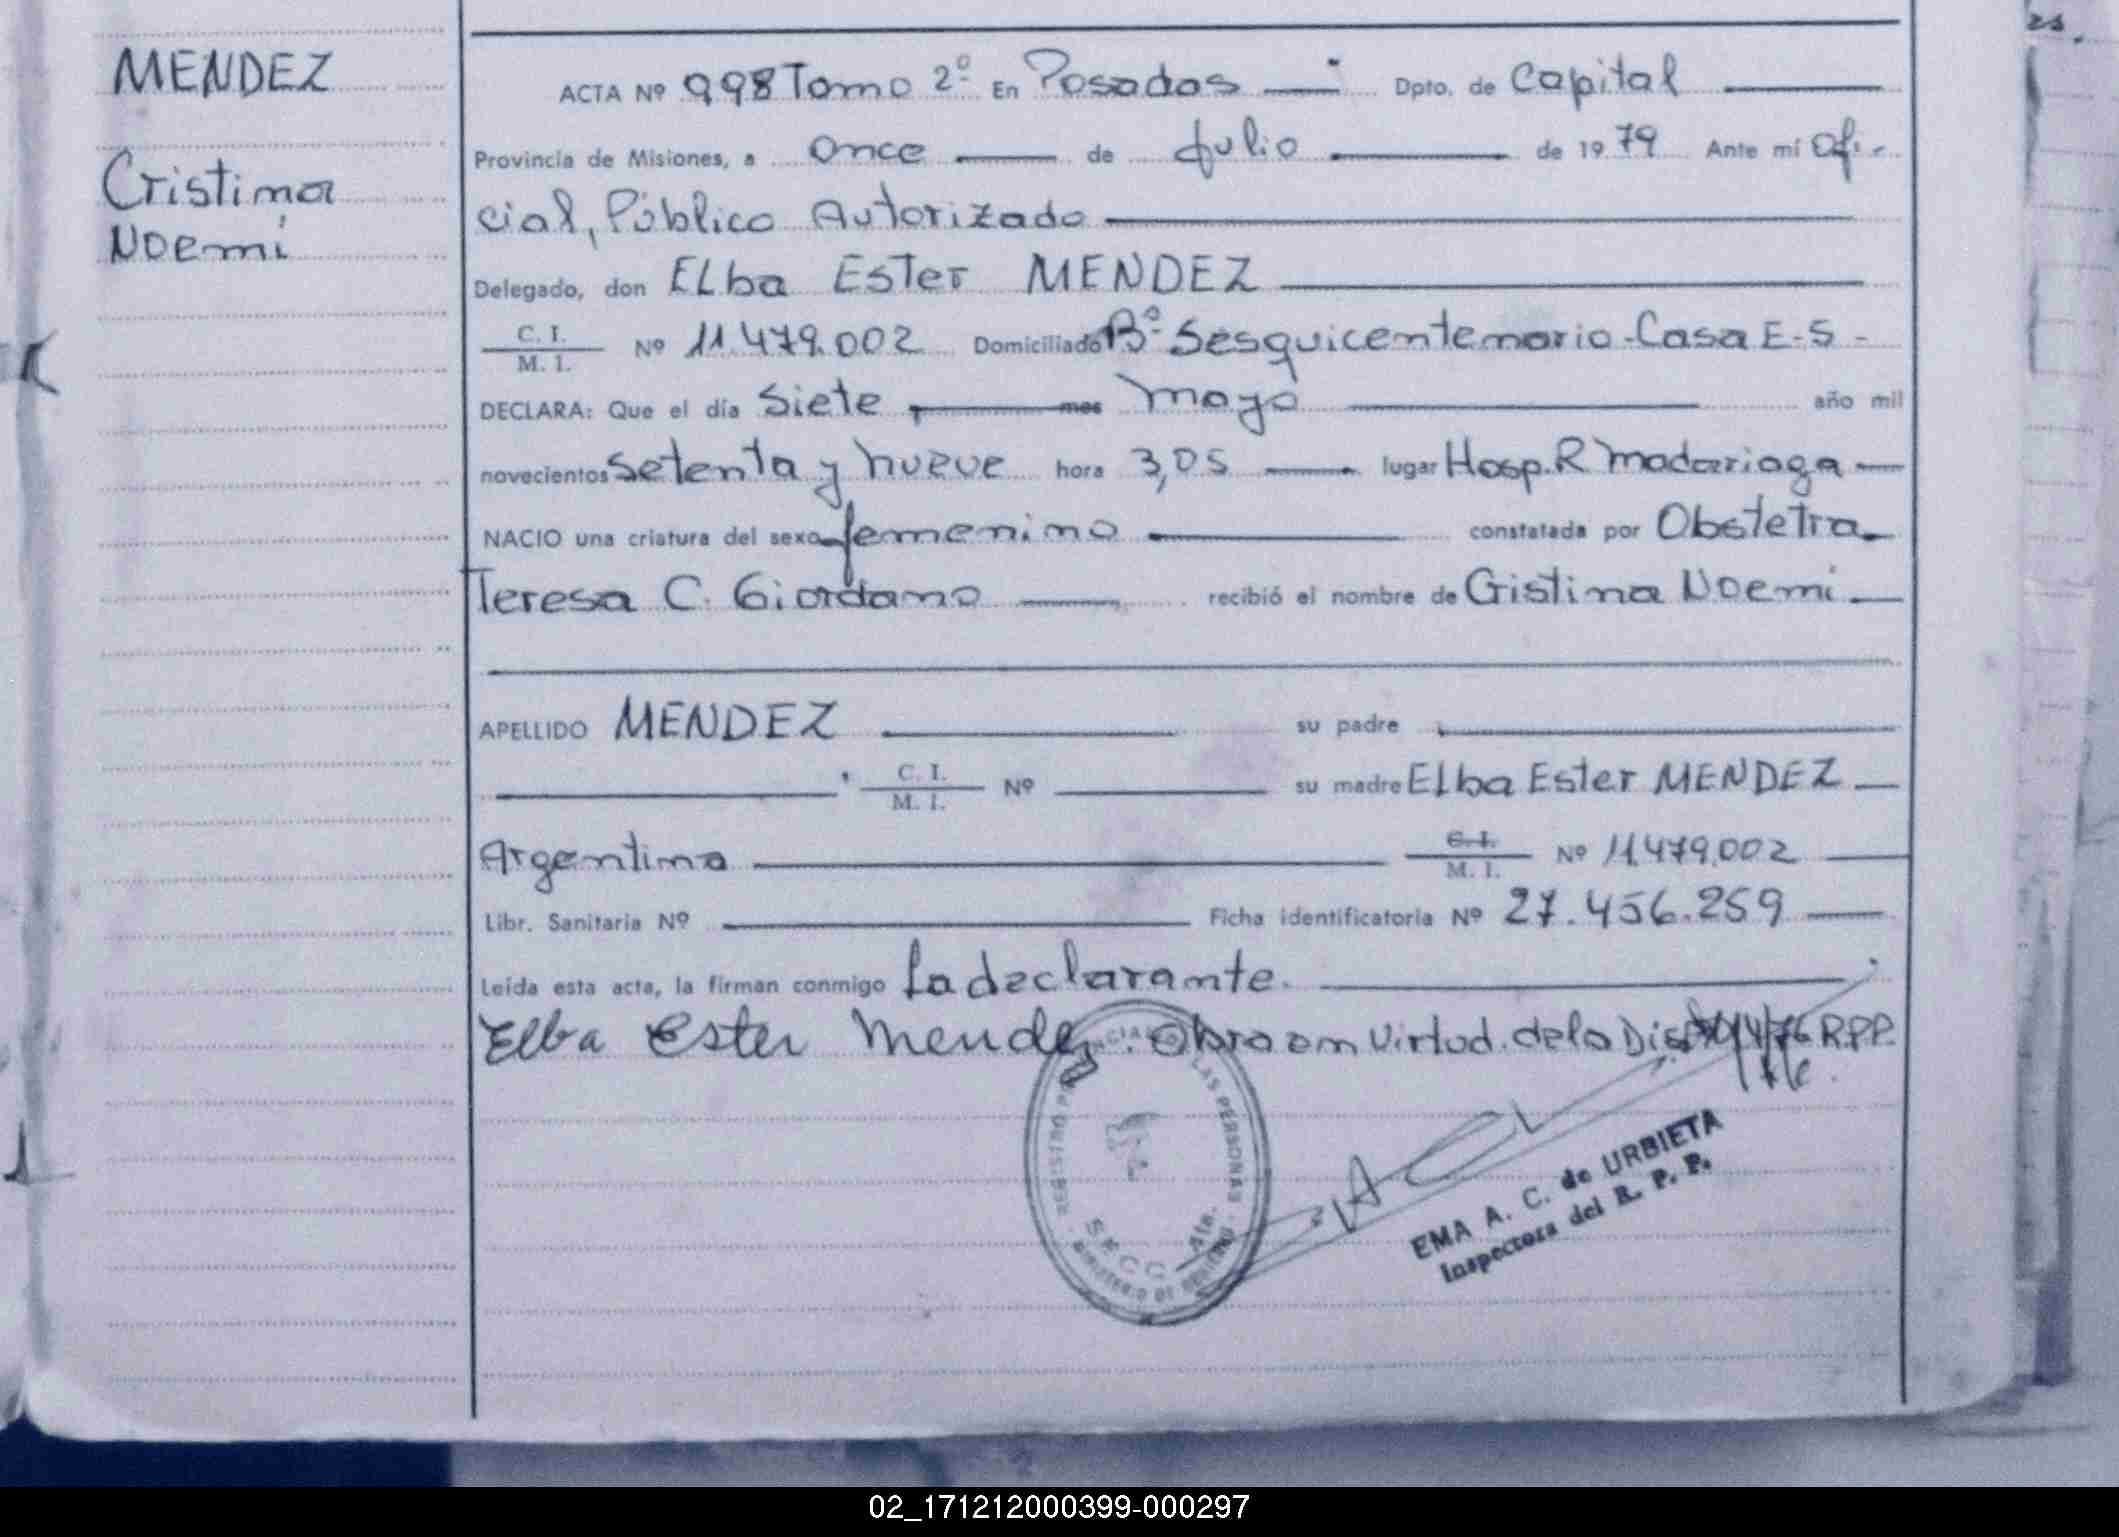 es.
MENDEZ
Cristina
Noemí
ACTA Nº 998 Tomo 2º En Posadas Dpto. de Capital
Provincia de Misiones, a once de Julio de 1979 Ante mí Ofi-
cial, Público Autorizado
Delegado, don ELba Ester MENDEZ
C. I. / M. I. Nº 11.479.002 Domiciliado Bº Sesquicentenario-Casa E-5-
DECLARA: Que el día Siete mes mayo año mil
novecientos setenta y nueve hora 3,05 lugar Hosp. R Madariaga
NACIO una criatura del sexo femenino constatada por Obstetra
Teresa C. Giordano recibió el nombre de Cristina Noemí
APELLIDO MENDEZ su padre
C. I. / M. I. Nº su madre Elba Ester MENDEZ
Argentina C. I. / M. I. Nº 11.479.002
Libr. Sanitaria Nº Ficha identificatoria Nº 27.456.259
Leída esta acta, la firman conmigo la declarante.
Elba Ester Mendez. Obra en virtud de la R.P.P.
REGISTRO PROVINCIAL DE LAS PERSONAS
SECC. Ata.
MINISTERIO DE GOBIERNO
EMA A. C. de URBIETA
Inspectora del R. P. P.
02_171212000399-000297